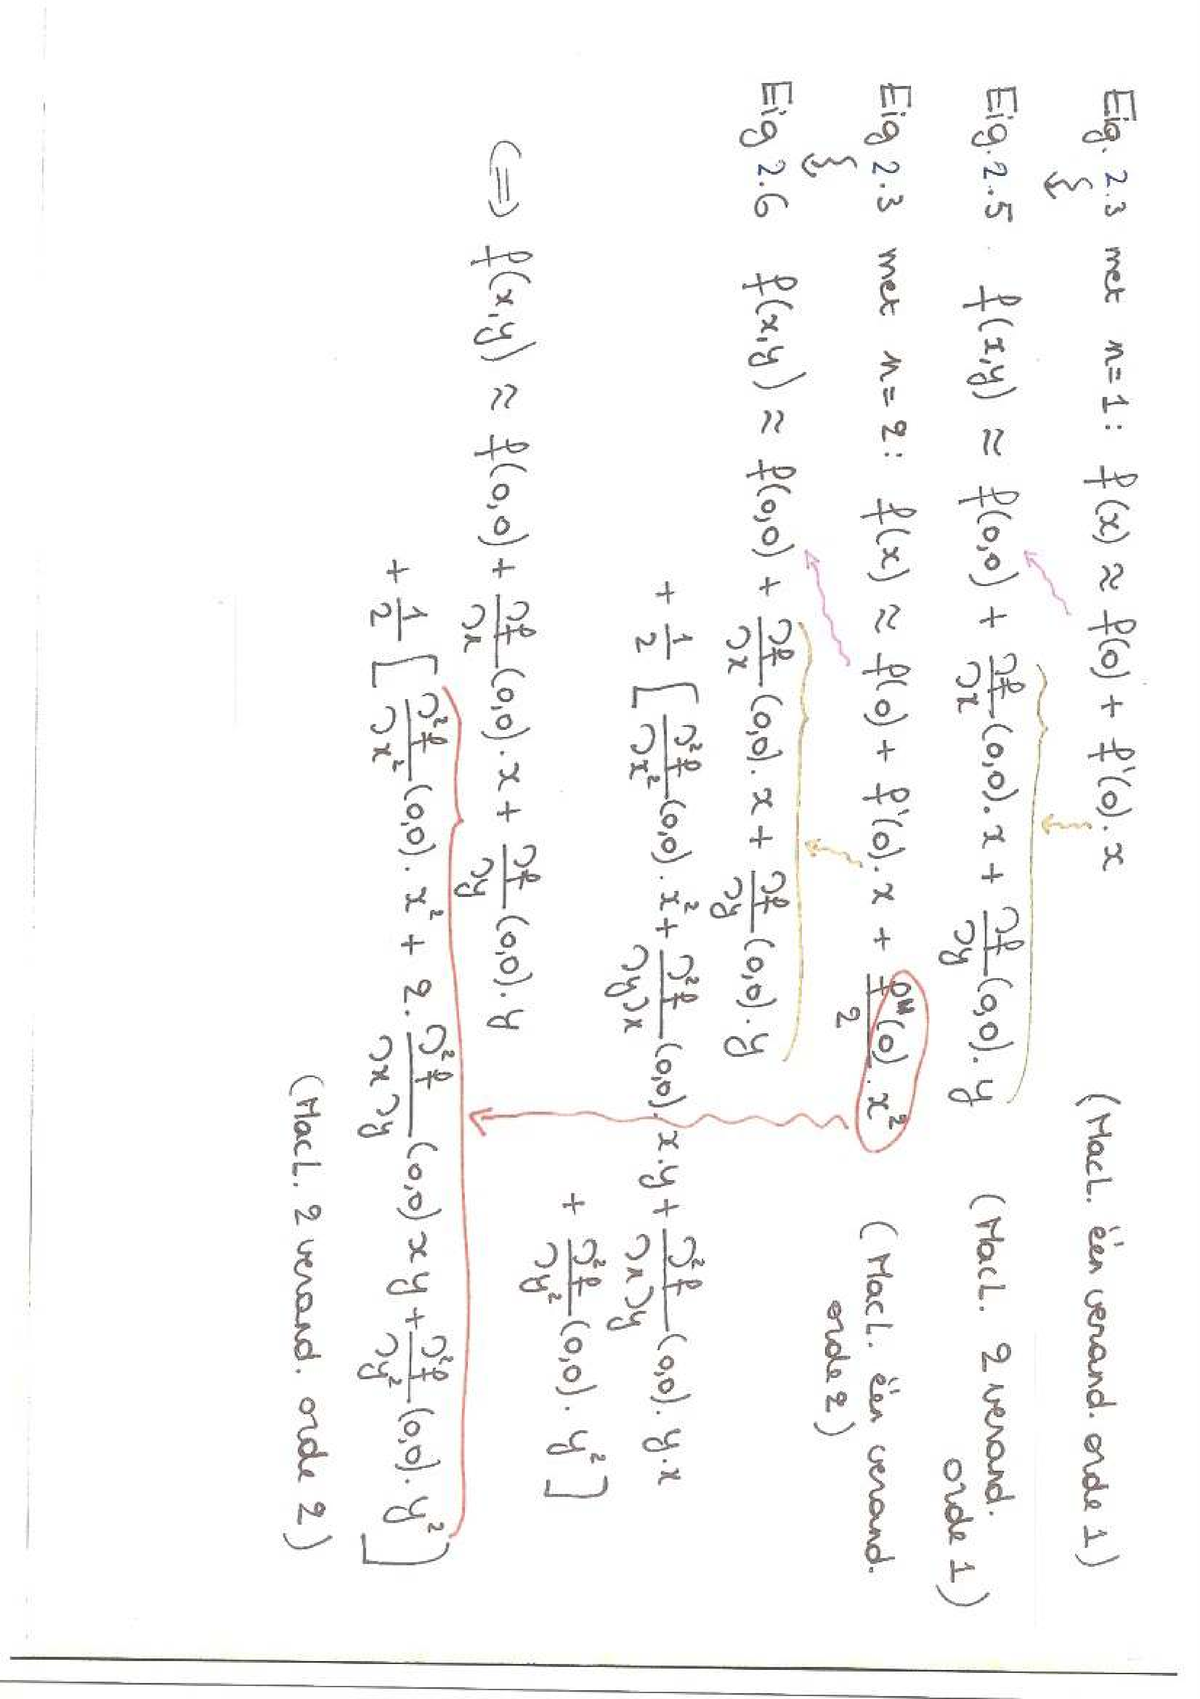 Eig. 2.3 met n=1: f(x) ≈ f(0) + f'(0).x (MacL. één verand. orde 1)
Eig. 2.5 f(x,y) ≈ f(0,0) + ∂f/∂x (0,0).x + ∂f/∂y (0,0).y (MacL. 2 verand. orde 1)
Eig 2.3 met n=2: f(x) ≈ f(0) + f'(0).x + f''(0).x²/2 (MacL. één verand. orde 2)
Eig 2.6 f(x,y) ≈ f(0,0) + ∂f/∂x (0,0).x + ∂f/∂y (0,0).y
+ 1/2 [ ∂²f/∂x² (0,0).x² + ∂²f/∂y∂x (0,0).x.y + ∂²f/∂x∂y (0,0).y.x
+ ∂²f/∂y² (0,0).y² ]
⟺ f(x,y) ≈ f(0,0) + ∂f/∂x (0,0).x + ∂f/∂y (0,0).y
+ 1/2 [ ∂²f/∂x² (0,0).x² + 2.∂²f/∂x∂y (0,0) x y + ∂²f/∂y² (0,0).y² ]
(MacL. 2 verand. orde 2)